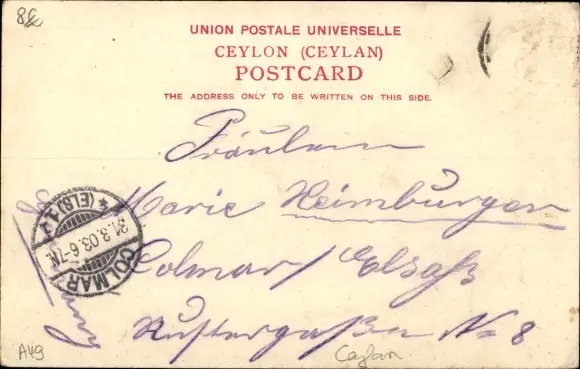 8£
UNION POSTALE UNIVERSELLE
CEYLON (CEYLAN)
POSTCARD
THE ADDRESS ONLY TO BE WRITTEN ON THIS SIDE.
Fräulein
Marie Heimburger
Colmar / Elsaß
Rustergaßen No 8
COLMAR
31.3.03. 6-7N.
* (ELS) 1 *
A49
Ceylan